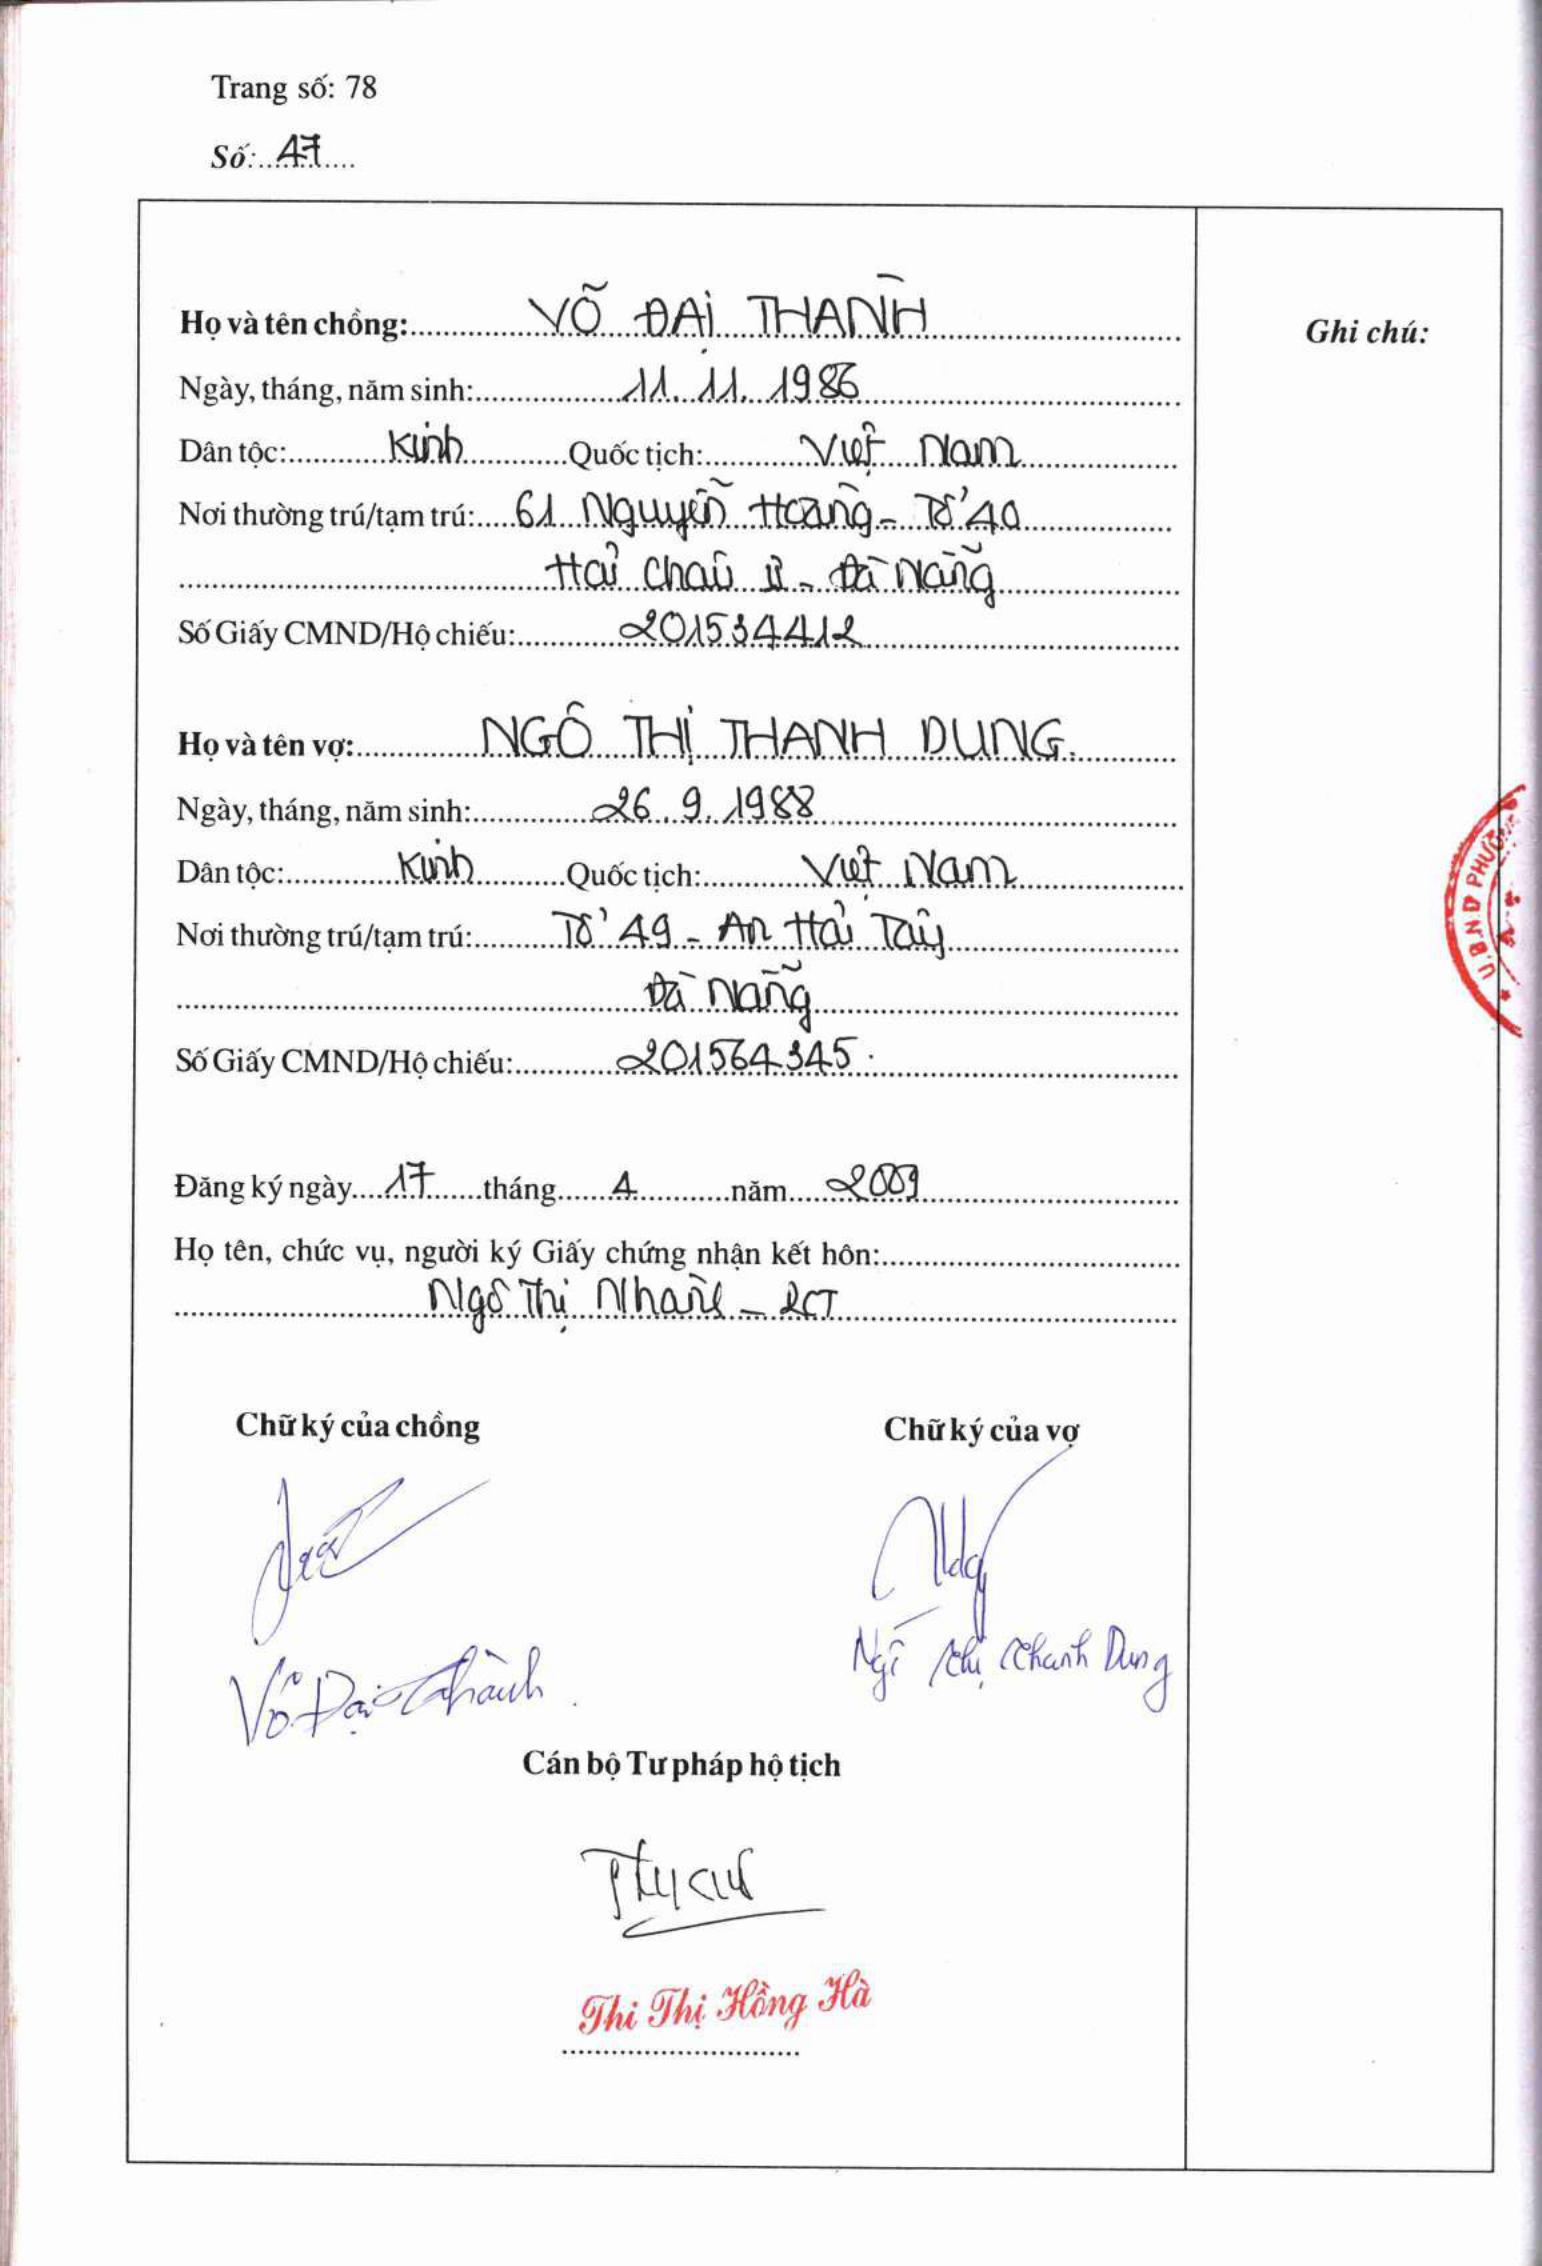 Trang số: 78
Số: 47
Họ và tên chồng: VÕ ĐẠI THÀNH
Ghi chú:
Ngày, tháng, năm sinh: 11.11.1986
Dân tộc: Kinh Quốc tịch: Việt Nam
Nơi thường trú/tạm trú: 61 Nguyễn Hoàng - Tổ 40
Hải Châu II - Đà Nẵng
Số Giấy CMND/Hộ chiếu: 201534412
Họ và tên vợ: NGÔ THỊ THANH DUNG.
Ngày, tháng, năm sinh: 26.9.1988
Dân tộc: Kinh Quốc tịch: Việt Nam
Nơi thường trú/tạm trú: Tổ 49 - An Hải Tây
Đà Nẵng
Số Giấy CMND/Hộ chiếu: 201564345.
U.B.N.D PHƯỜNG
Đăng ký ngày 17 tháng 4 năm 2009
Họ tên, chức vụ, người ký Giấy chứng nhận kết hôn:
Ngô Thị Nhàn - PCT
Chữ ký của chồng Chữ ký của vợ
Võ Đại Thành
Ngô Thị Thanh Dung
Cán bộ Tư pháp hộ tịch
Thi Thị Hồng Hà